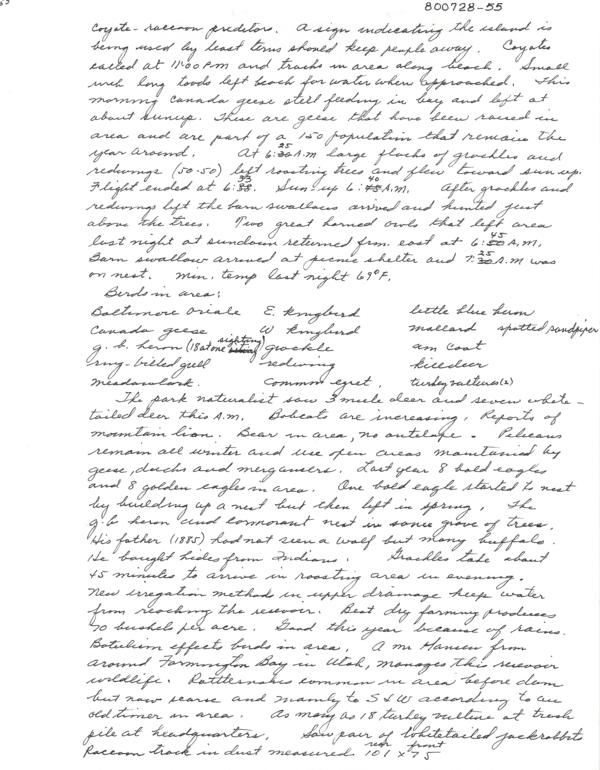 800728-55
Coyote-raccoon preditors. A sign indicating the island is
being used by least terns should keep people away. Coyotes
called at 11:00 P.M and tracks in area along beach. Small
inch long toads left beach for water when approached. This
morning Canada geese still feeding in bay and left at
about sunup. These are geese that have been raised in
area and are part of a 150 population that remains the
year around. At 6:25 A.M large flocks of grackles and
redwings (50-50) left roosting trees and flew toward sun up.
Flight ended at 6:33. Sun-up 6:40 A.M. After grackles and
redwings left the barn swallows arrived and hunted just
above the trees. Two great horned owls that left area
last night at sundown returned from east at 6:45 A.M.
Barn swallow arrived at picnic shelter and 7:25 A.M was
on nest. Min. temp last night 69°F.
Birds in area:
Baltimore oriole E. Kingbird little blue heron
Canada geese W Kingbird mallard spotted sandpiper
g. b. heron (18 at one sighting) grackle am coot
ring-billed gull redwing killdeer
meadowlark. Common egret, turkey vultures (2)
The park naturalist saw 3 mule deer and seven white-
tailed deer this A.M. Bobcats are increasing, Reports of
mountain lion. Bear in area, no antelope. Pelicans
remain all winter and use open areas maintained by
geese, ducks and mergansers. Last year 8 bald eagles
and 8 golden eagles in area. One bald eagle started to nest
by building up a nest but then left in spring. The
g. b heron and cormorant nest in same grove of trees.
His father (1885) had not seen a wolf but many buffalo.
He bought hides from Indians. Grackles take about
45 minutes to arrive in roosting area in evening.
New irregation methods in upper drainage keep water
from reaching the resevoir. Best dry farming produces
70 bushel per acre. Good this year because of rains.
Botulism effects birds in area. A Mr Hansen from
around Farmington Bay in Utah, manages this resevoir
wildlife. Rattlesnakes common in area before dam
but now scarse and mainly to S & W according to an
old timer in area. As many as 18 turkey vulture at trash
pile at headquarters. Saw pair of Whitetailed jackrabbits
Raccoon track in dust measured rear 101 x front 75